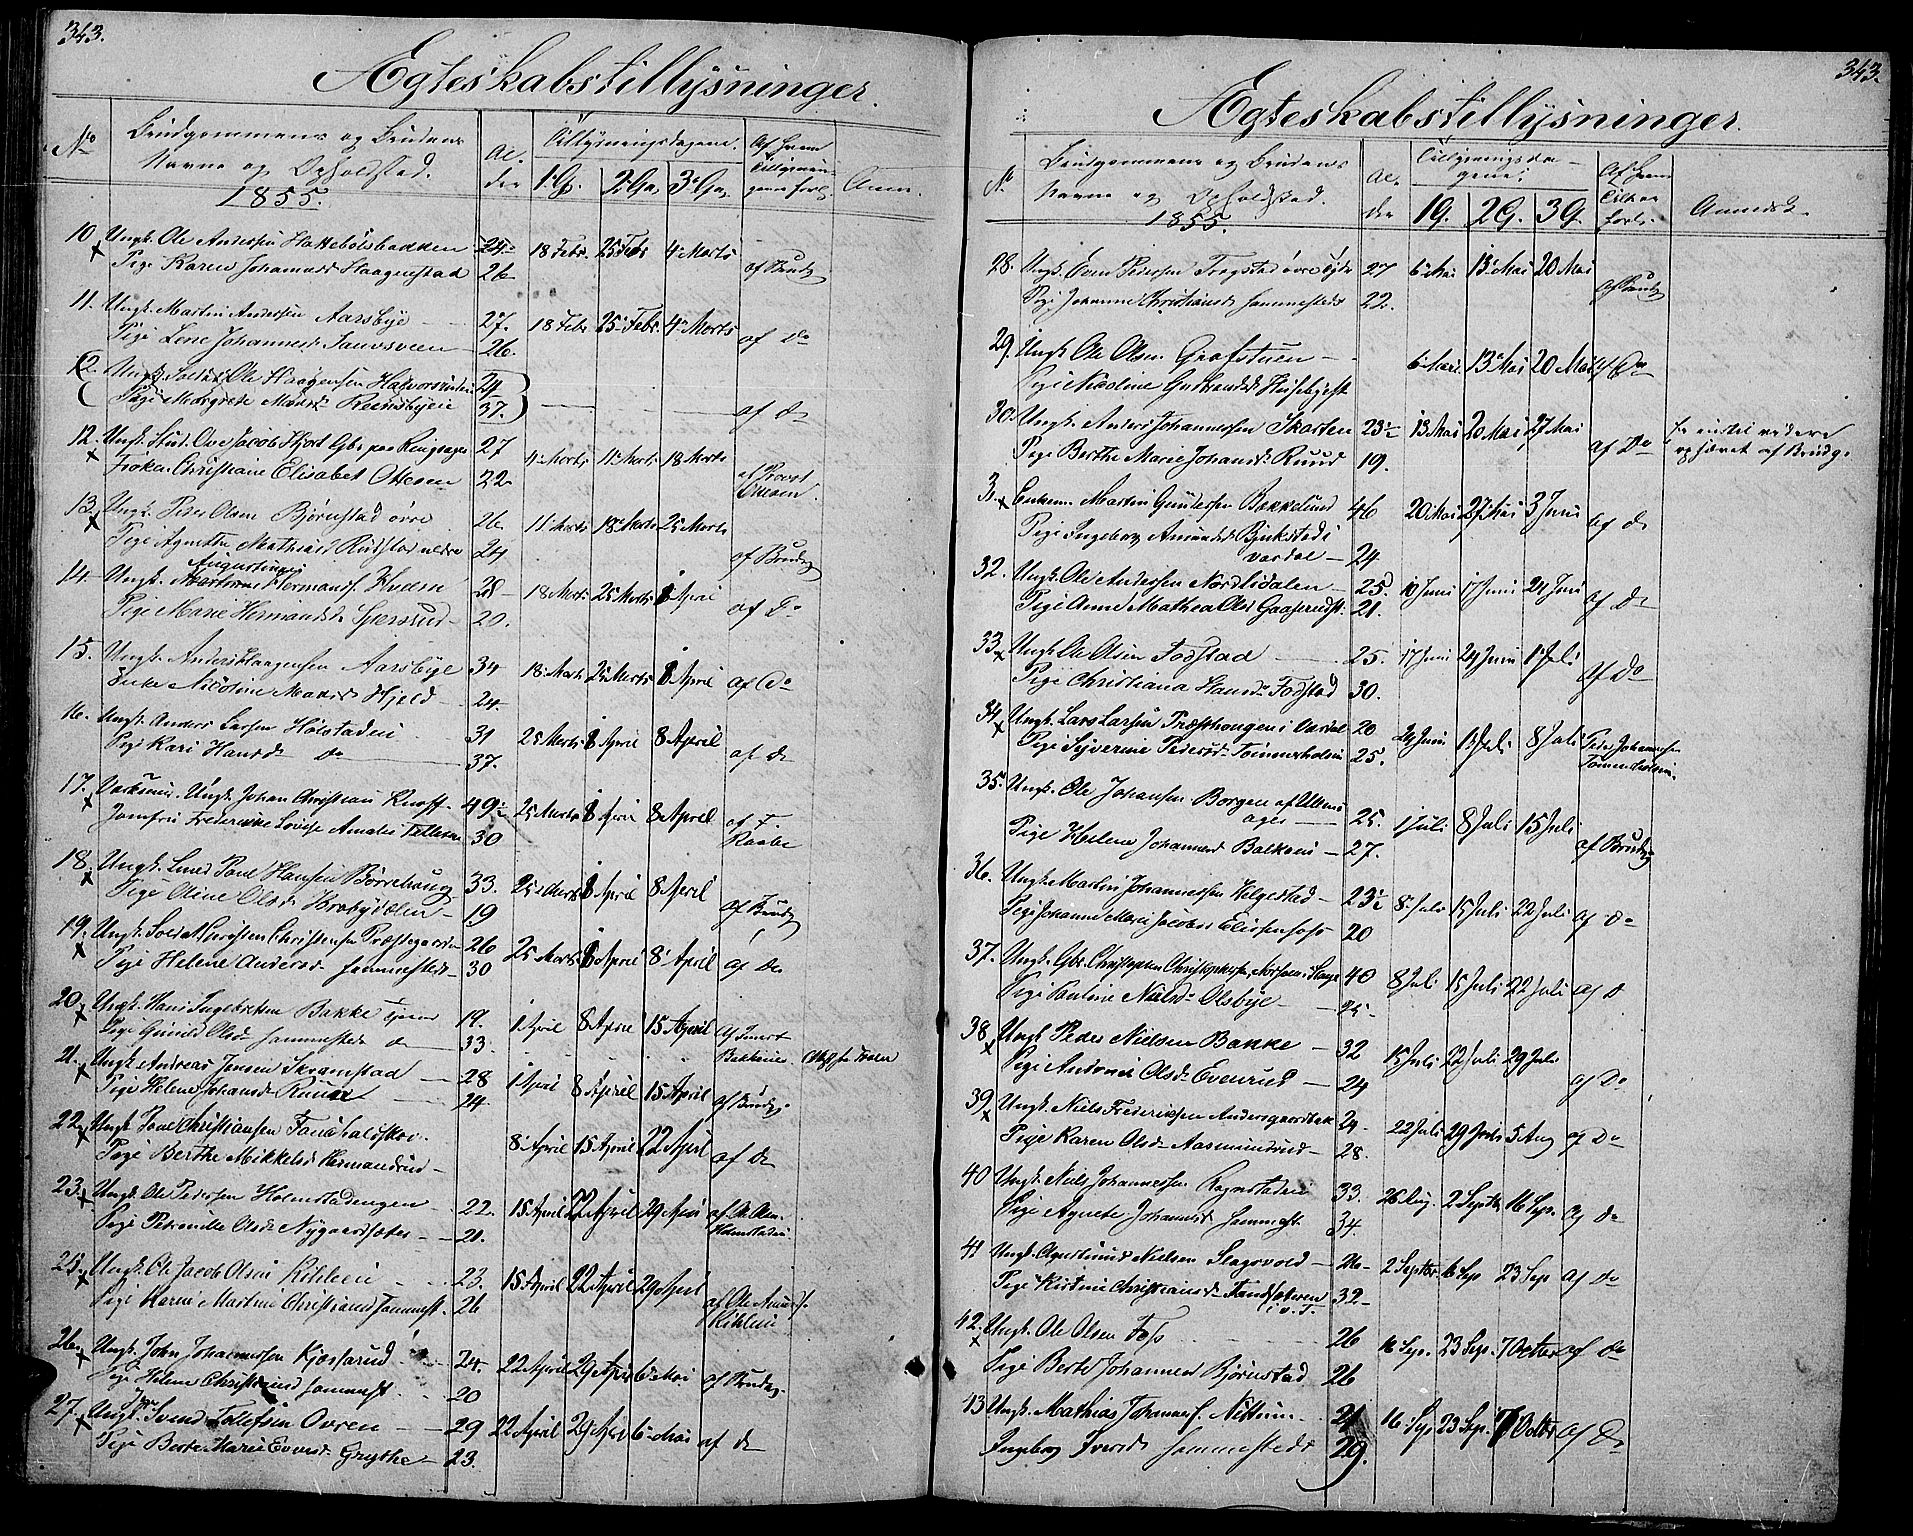 343.
Ægteskabstillysninger.
No
Brudgommens og Brudens
Navne og Opholdsted.
1855.
Al-
der
Tillysningsdagene.
1.G. 2.Ga. 3.Ga.
Af hvem
Tillysnin-
gen forl.
Anm
10 Ungk. Ole Andersen Hattebølsbakken 24 18 Febr. 25 Febr 4 Marts
Pige Karen Johannesd Haagenstad 26 af Brudg
11. Ungk. Martin Andersen Aarsbye 27. 18 Febr 25 Febr. 4 Marts
Pige Lene Johannesd 26. af Do
12. Ungk. Soldat Ole Haagensen 24
Pige Margrete Monsd. 37. af Do
12. Ungk. Stud. Ove Jacob Hjort Gbr. paa Ringsager 27 4 Marts 11 Marts 18 Marts
Frøken Christiane Elisabet Ottesen 22 af Provst
Ottesen.
13. Ungk. Peder Olsen Bjørnstad øvre 26. 11 Marts 18 Marts 25 Marts
Pige Agnethe Mathiasd Rudstad nedre 24 af Brudg
Augustinus
14. Ungk. Hermands. Hveem 28 18 Marts 25 Marts 1 April
Pige Marie Hermandsd Sperrud 20. af Do
15. Ungk. Anders Haagensen Aarsbye 34 18 Marts 25 Marts 1 April
Enke Nicoline Monsd Hjeld 24. af Do
16. Ungk. Anders Larsen Holstaden 31 25 Marts 1 April 8 April
Pige Kari Hansd Do 37. af Do
17. Ungk. Johan Christian Knoff 49 25 Marts 1 April 8 April
Jomfru Frederikke Lovise Amalie Tellesen 30 af F.
Raabe
18. Ungk. Poul Hansen Børrehaug 33. 25 Marts 1 April 8 April
Pige Oline Olsd Krabydalen 19 af Brudg
19. Ungk. Soldat Christen Christensen Præstegaarden 26 25 Marts 1 April 8 April
Pige Helene Andersd. sammesteds 30 af Do
20. Ungk. Hans Ingebretsen Bakke 19. 1 April 8 April 15 April
Pige Gunild Olsd sammesteds 33. Bakkene
21. Ungk. Andreas Jensen Skramstad 28 1 April 8 April 15 April
Pige Helene Johansd. Ruud 24 af Brudg.
22. Ungk. Poul Christiansen 8 April 15 April 22 April
Pige Berthe Mikkelsd Hermandrud af Do
23. Ungk. Ole Pedersen Holmstadengen 22. 15 April 22 April 29 April af Ole Olsen
Pige Petronille Olsd Nygaardsæter 21. Holmstaden
25. Ungk. Ole Jacob Olsen Kihleie 23. 15 April 22 April 29 April
Pige Karen Martine Christiansd Sammest. 26 af Ole
Kihleie
26. Ungk. John Johannessen Kjosserud 24. 22 April 29 April 6 Mai
Pige Helene Christiansd sammest. 20 af Brudg.
27. Ungk. Svend Tollefsen Ovren 29 22 April 29 April 6 Mai
Pige Berte Marie Evensd. Grythe 23. af Do
343.
Ægteskabstillysninger.
No
Brudgommens og Brudens
Navne og Opholdsted.
1855.
Al-
der
Tillysningsda-
gene:
1 G. 2 G. 3 G.
Af hvem
forl.
Anmærk.
28. Ungk. Even Pedersen Fragstad øvre 27 6 Mai 13 Mai 20 Mai
Pige Johanne Christiansd sammesteds 22. af Brudg
29. Ungk. Ole Olsen Grafstuen 6 Mai. 13 Mai 20 Mai af Do
Pige Karoline Gulbrandsd Huseby
30. Ungk. Anders Johannessen Skarten 23½ 13 Mai 20 Mai 27 Mai
Pige Berthe Marie Johansd. Ruud 19. af Do
ophævet af Brudg.
31. Enkem. Martin Gundersen Bekkelund 46 20 Mai 27 Mai 3 Juni
Pige Ingeborg Amundsd i
Vardal 24 af Do
32. Ungk. Ole Andersen Nordlidalen 25. 10 Juni 17 Juni 24 Juni
Pige Anne Mathea Olsd 21. af Do
33. Ungk. Ole Olsen Fodstad 25. 17 Juni 24 Juni 1 Juli
Pige Christiana Hansd. Fodstad 30. af Do
34. Ungk. Lars Larsen Præsthaugen i Vardal 20 24 Juni 1 Juli 8 Juli Peder Johannesen
Pige Syverine Pedersd. Tømmerholen 25. Tømmerholen.
35. Ungk. Ole Johansen Borgen af Ullens-
ager 25. 1 Juli 8 Juli 15 Juli
Pige Helene Johannesd Balkeni 27. af Brudg
36. Ungk. Martin Johannessen Helgestad 23½ 8 Juli 15 Juli 22 Juli
Pige Johanne Marie Jacobsd Eliesenfoss 20 af Do
37. Ungk. Gbr. Christopher Christophersen i Stange 40 8 Juli 15 Juli 22 Juli
Pige Pauline Nielsd Olsbye 25 af Do
38. Ungk Peder Nielsen Bakke 32 15 Juli 22 Juli 29 Juli
Pige Antonie Olsd Evenrud 24 af Do
39. Ungk. Niels Frederiksen Andersgaardbak 24. 22 Juli 29 Juli 5 Aug
Pige Karen Olsd Aasmundrud 28. af Do
40 Ungk. Niels Johannessen Rognstaden 33. 26 Aug. 2 Septbr 16 Sep.
Pige Agnete Johannesd Sammest. 34. af Do
41 Ungk. Agustinus Nielsen Slagsvold 26 2 Septbr. 16 Sep 23 Sep
Pige Kirstine Christiansd. 32
i V.T. af Do
42. Ungk. Ole Olsen Foss 26 16 Sep. 23 Sep. 7 Octbr
Pige Berte Johannesd Bjørnstad 26 af Do
43 Ungk. Mathias Johannes. Nettum 21 16 Sep 23 Sep. 7 Octbr
Ingeborg Iversd. sammesteds 29. af Do